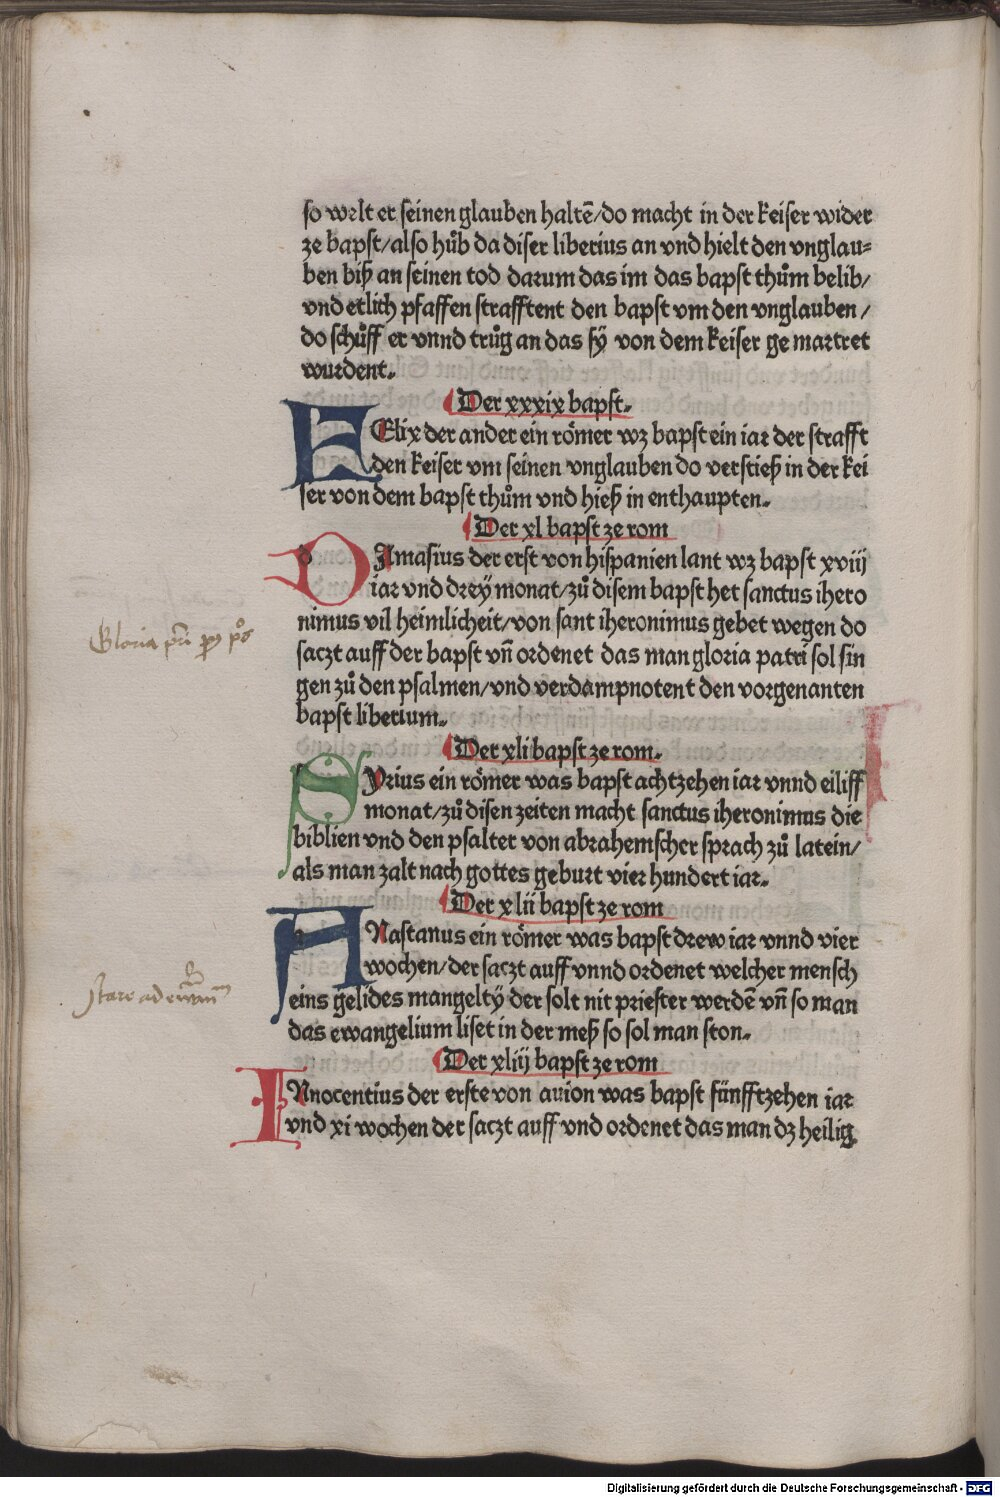 so welt er seinen glauben haltē/do macht in der keiser wider
ze bapst/also hůb da diser liberius an vnd hielt den vnglau⸗
ben biß an seinen tod darum das im das bapst thům belib/
vnd etlich pfaffen strafftent den bapst vm den vnglauben/
do schůff er vnnd trůg an das sÿ von dem keiser ge martret
wurdent.
Der xxxix bapst.
FElix der ander ein römer wz bapst ein iar der strafft
den keiser vm seinen vnglauben do verstieß in der kei
ser von dem bapst thům vnd hieß in enthaupten.
Der xl bapst ze rom
DAmasius der erst von hispanien lant wz bapst xviij
iar vnd dreÿ monat/zů disem bapst het sanctus ihero
nimus vil heimlicheit/von sant iheronimus gebet wegen do
saczt auff der bapst vn̄ ordenet das man gloria patri sol sin
gen zů den psalmen/vnd verdampnotent den vorgenanten
bapst liberium.
Der xli bapst ze rom.
SYrius ein römer was bapst achtzehen iar vnnd eiliff
monat/zů disen zeiten macht sanctus iheronimus die
biblien vnd den psalter von abrahemscher sprach zů latein/
als man zalt nach gottes geburt vier hundert iar.
Der xlii bapst ze rom
ANastanus ein römer was bapst drew iar vnnd vier
wochen/der saczt auff vnnd ordenet welcher mensch
eins gelides mangeltÿ der solt nit priester werdē vn̄ so man
das ewangelium liset in der meß so sol man ston.
Der xliij bapst ze rom
INnocentius der erste von auion was bapst fünfftzehen iar
vnd xi wochen der saczt auff vnd ordenet das man dz heilig
Gloria
stare ad
Digitalisierung gefördert durch die Deutsche Forschungsgemeinschaft - DFG